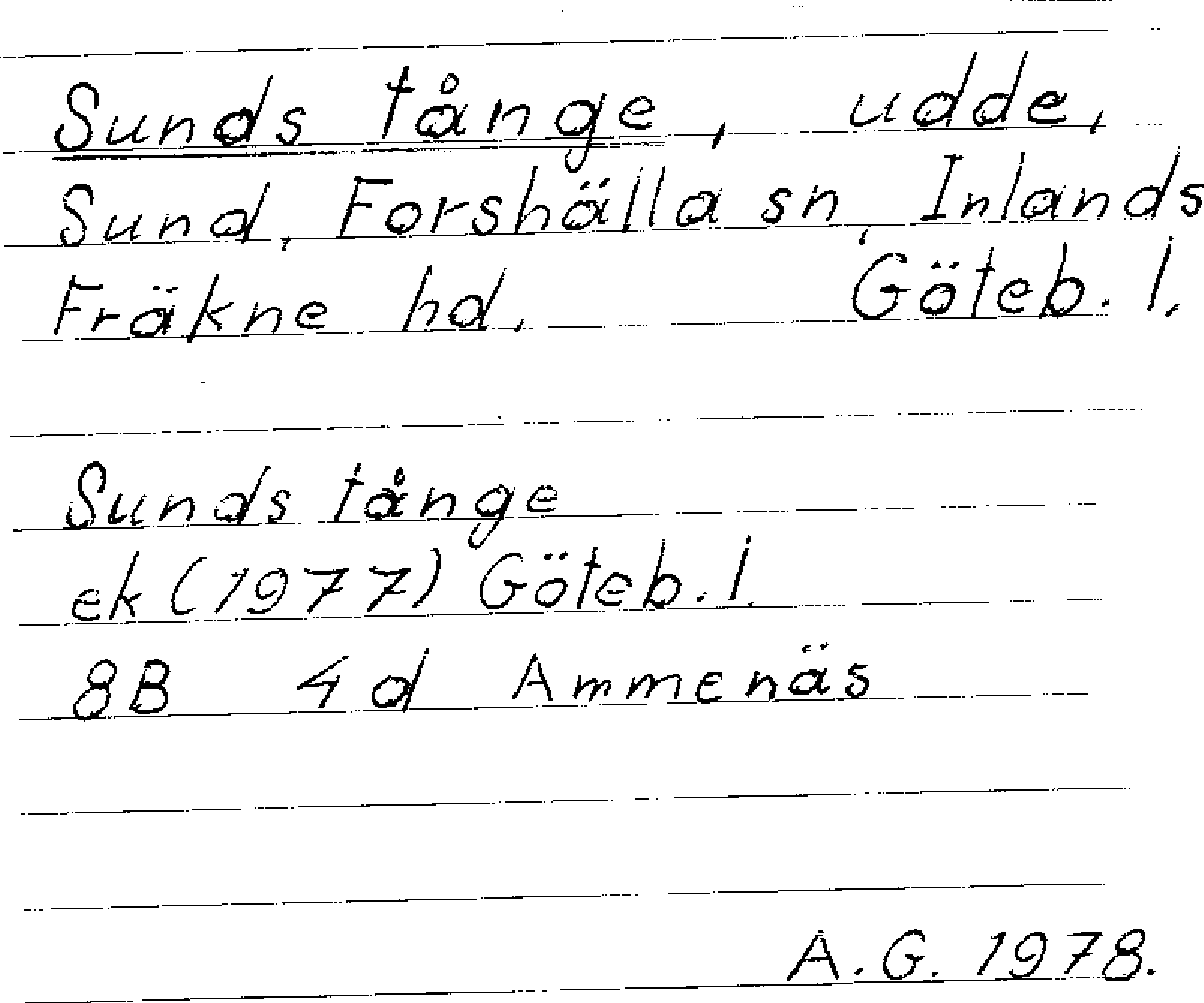 Sunds tånge, udde,
Sund, Forshälla sn, Inlands
Fräkne hd. Göteb. l.
Sunds tånge
ek (1977) Göteb. l.
8B 4d Ammenäs
A.G. 1978.